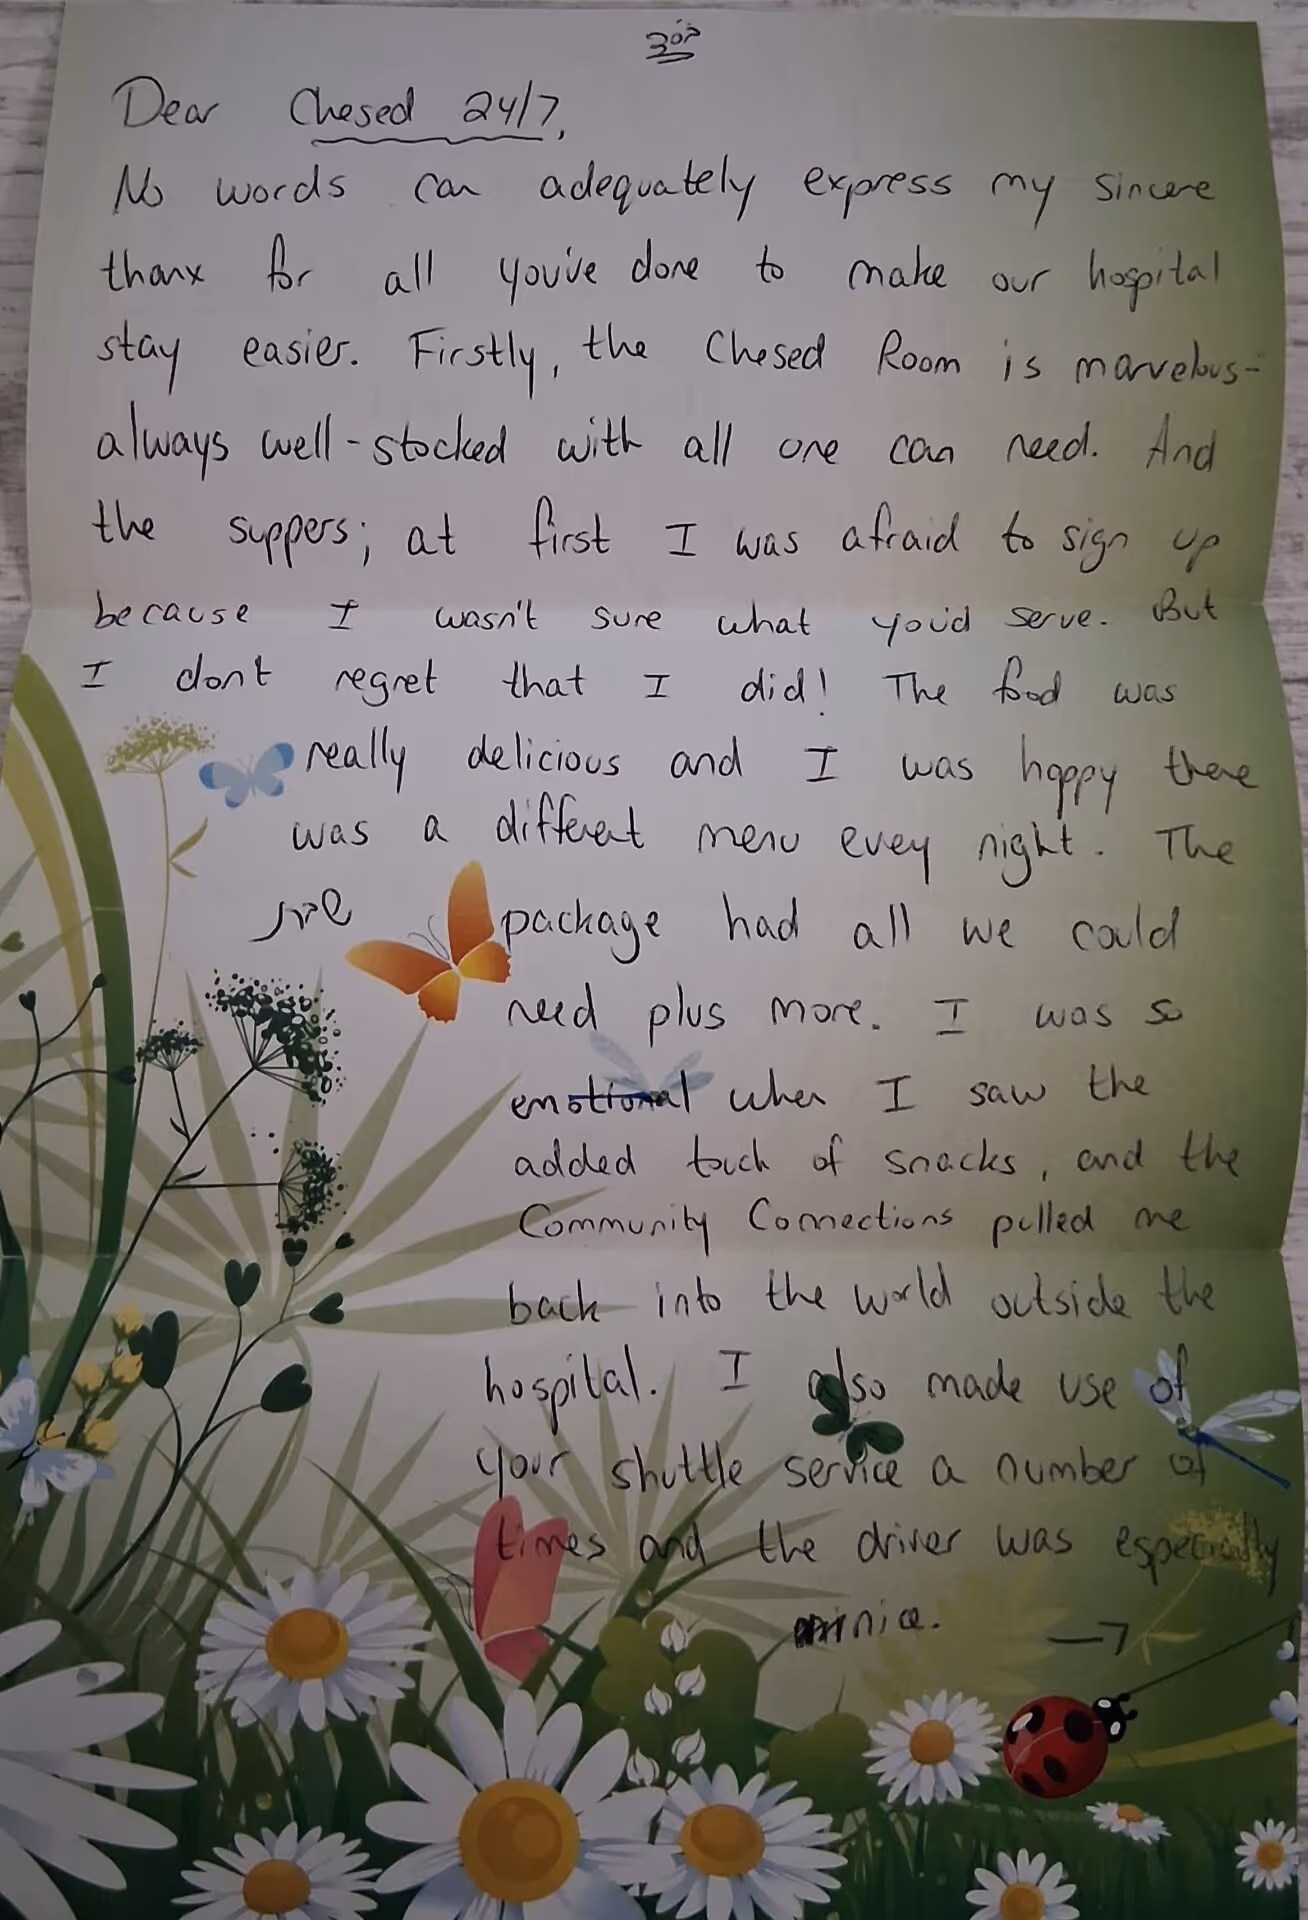 Dear Chesed 24/7,
No words can adequately express my sincere
thanx for all you've done to make our hospital
stay easier. Firstly, the Chesed Room is marvelous-
always well-stocked with all one can need. And
the suppers; at first I was afraid to sign up
because I wasn't sure what you'd serve. But
I don't regret that I did! The food was
really delicious and I was happy there
was a different menu evey night. The
package had all we could
need plus more. I was so
emotional when I saw the
added touch of snacks, and the
Community Connections pulled me
back into the world outside the
hospital. I also made use of
your shuttle service a number of
times and the driver was especially
nice. →